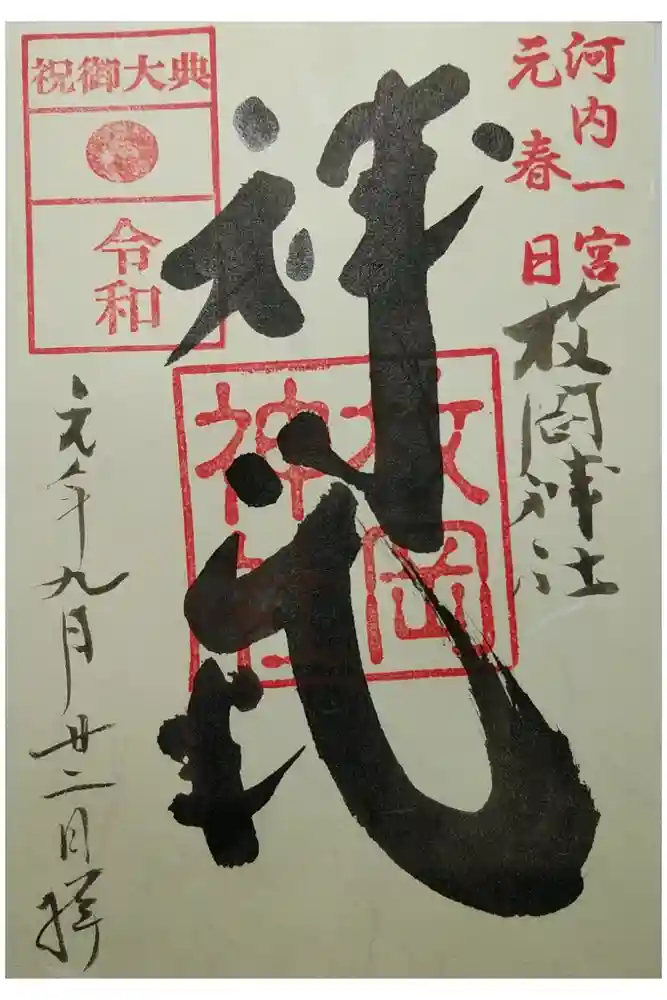 河内一宮
元春日
枚岡神社
枚岡
神社
祝御大典
令和
元年九月廿二日拝